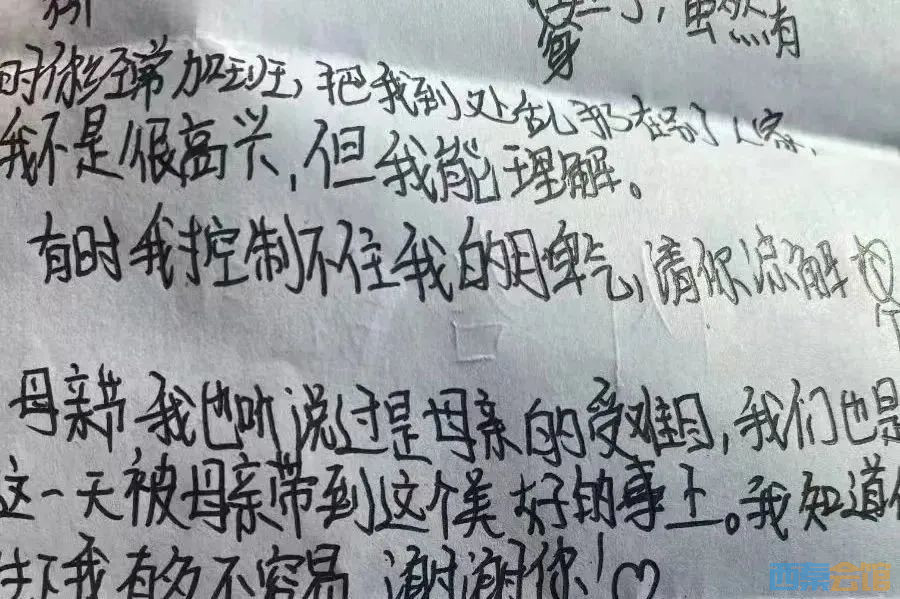 虽然有
身
时你经常加班，把我到处乱扔在别人家，
我不是很高兴，但我能理解。
有时我控制不住我的脾气，请你凉解
母亲节，我也听说过是母亲的受难日，我们也是
这一天被母亲带到这个美好的事上。我知道你
生下我有多不容易 谢谢你！♡
西秦会馆